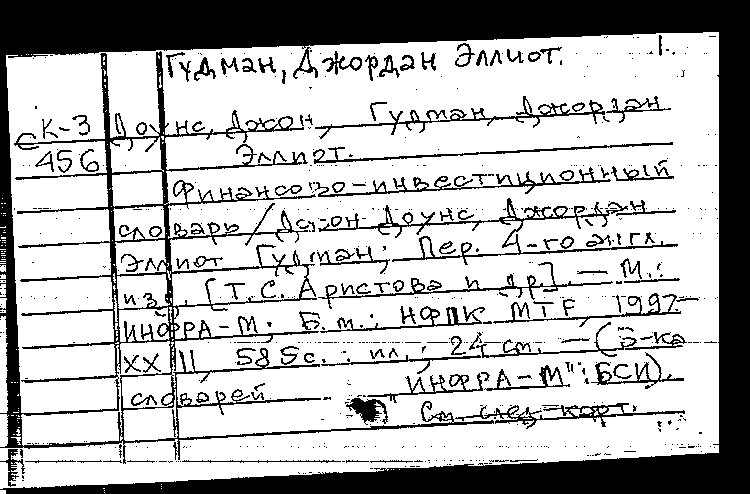 Гудман, Джордан Эллиот. 1.
СК-3 Доунс, Джон, Гудман, Джордан
456 Эллиот.
Финансово-инвестиционный
словарь / Джон Доунс, Джордан
Эллиот Гудман; Пер. 4-го англ.
изд. [Т.С. Аристова и др.]. — М.:
ИНФРА-М; Б.м.: НФПК MTF, 1997—
XXII, 585с.: ил.; 24 см. — (Б-ка
словарей "ИНФРА-М": БСИ).
См. след. карт.